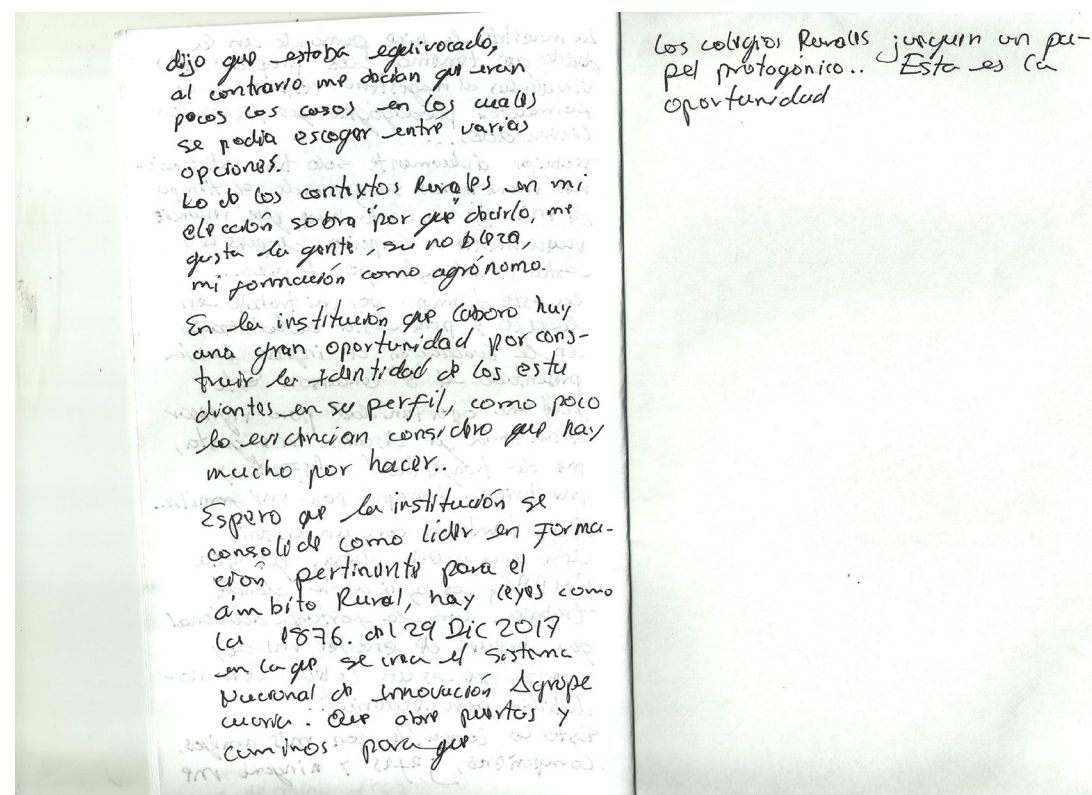 dijo que estaba equivocado,
al contrario me decian que eran
pocos los casos en los cuales
se podia escoger entre varias
opciones.
Lo de los contextos Rurales en mi
elección sobra "por que" decirlo, me
gusta la gente, su nobleza,
mi formación como agrónomo.
En la institución que laboro hay
una gran oportunidad por cons-
truir la identidad de los estu
diantes en su perfil, como poco
lo evidencian considero que hay
mucho por hacer..
Espero que la institución se
consolide como lider en forma-
ción pertinente para el
ámbito Rural, hay leyes como
la 1876. del 29 Dic 2017
en la que se crea el sistema
Nacional de innovación Agrope
cuaria: Que abre puertas y
caminos para que
los colegios Rurales jueguen un pa-
pel protagónico.. Esta es la
oportunidad